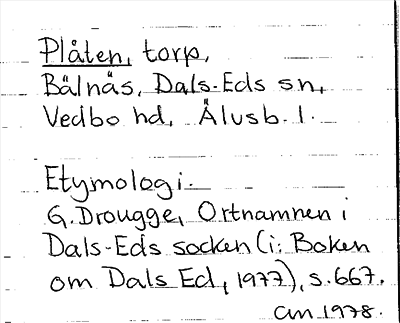 Plåten, torp,
Bälnäs, Dals-Eds sn,
Vedbo hd, Älvsb. l.
Etymologi.
G. Drougge, Ortnamnen i
Dals-Eds socken (i: Boken
om Dals Ed, 1977), s. 667.
am 1978.